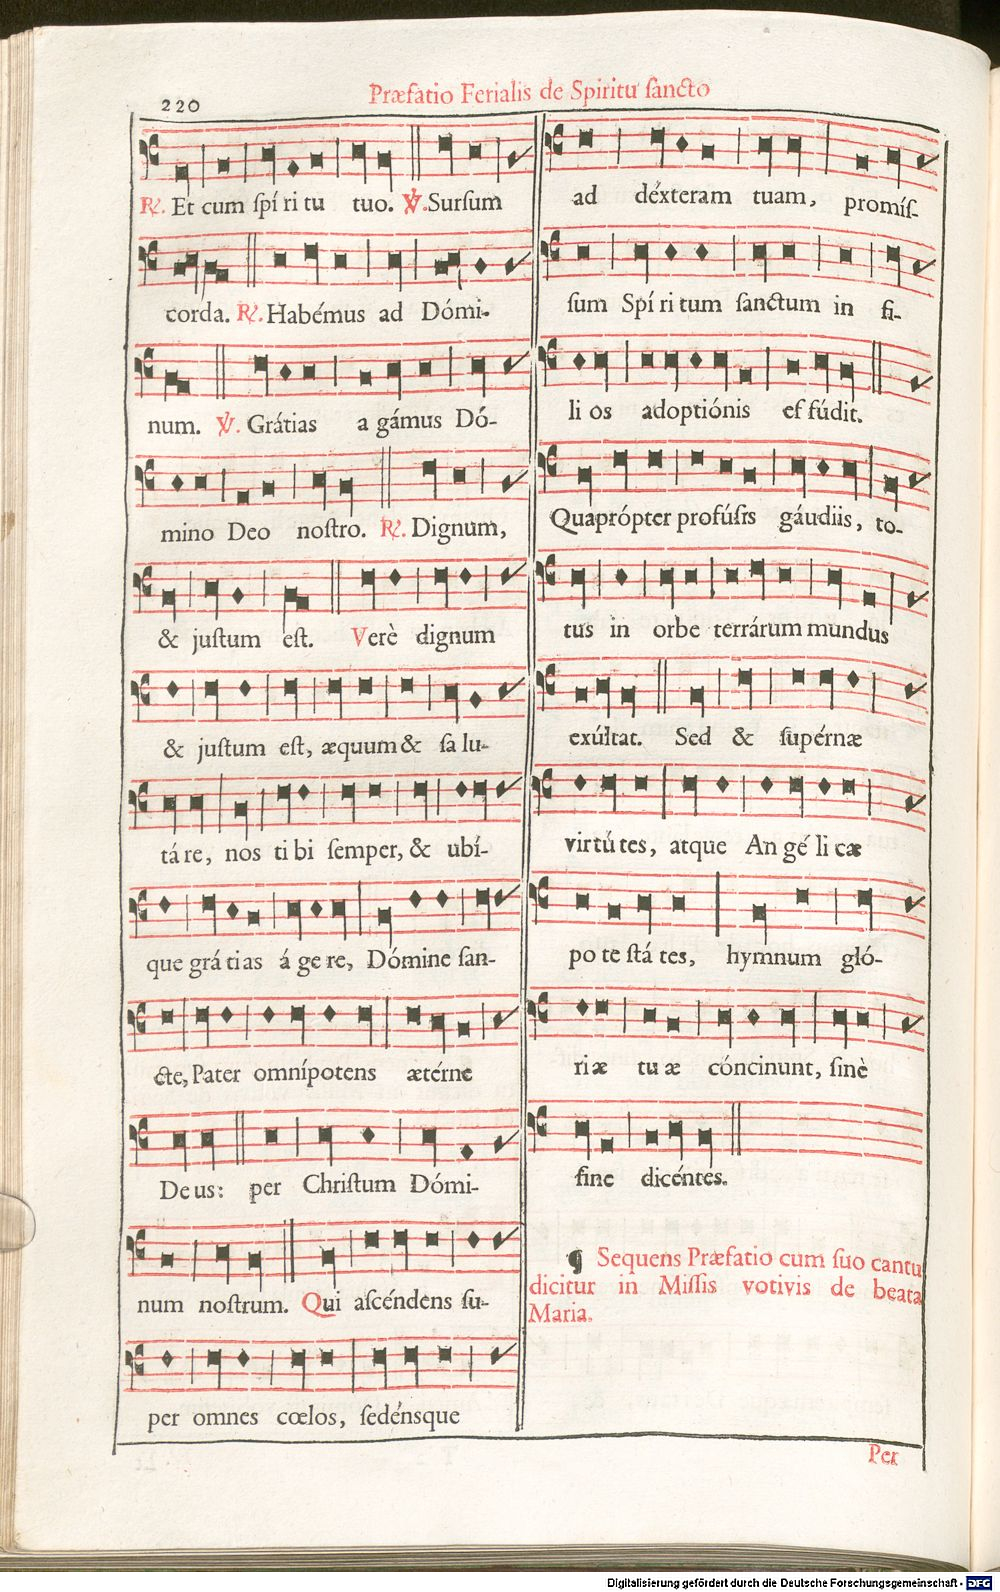 220
Præfatio Ferialis de Spiritu sancto
℟. Et cum spí ri tu tuo. ℣. Sursum
corda. ℟. Habémus ad Dómi-
num. ℣. Grátias a gámus Dó-
mino Deo nostro. ℟. Dignum,
& justum est. Verè dignum
& justum est, æquum & sa lu-
tá re, nos ti bi semper, & ubí-
que grá ti as á ge re, Dómine san-
cte, Pater omnípotens ætérne
De us: per Christum Dómi-
num nostrum. Qui ascéndens su-
per omnes cœlos, sedénsque
ad déxteram tuam, promís-
sum Spí ri tum sanctum in fi-
li os adoptiónis ef fúdit.
Quaprópter profúsis gáudiis, to-
tus in orbe terrárum mundus
exúltat. Sed & supérnæ
virtú tes, atque An gé li cæ
po te stá tes, hymnum gló-
ri æ tu æ cóncinunt, sinè
fine dicéntes.
¶ Sequens Præfatio cum suo cantu
dicitur in Missis votivis de beata
Maria.
Per
Digitalisierung gefördert durch die Deutsche Forschungsgemeinschaft - DFG